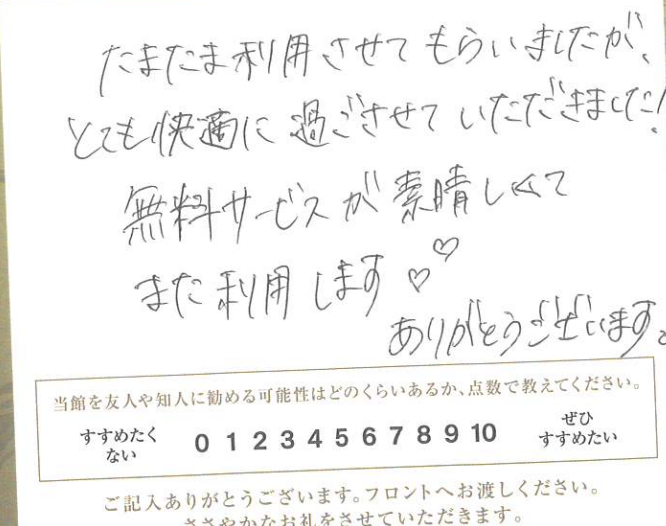 たまたま利用させてもらいましたが、
とても快適に過ごさせていただきました!
無料サービスが素晴しくて
また利用します♡♡
ありがとうございます。
当館を友人や知人に勧める可能性はどのくらいあるか、点数で教えてください。
すすめたくない 0 1 2 3 4 5 6 7 8 9 10 ぜひすすめたい
ご記入ありがとうございます。フロントへお渡しください。
ささやかなお礼をさせていただきます。